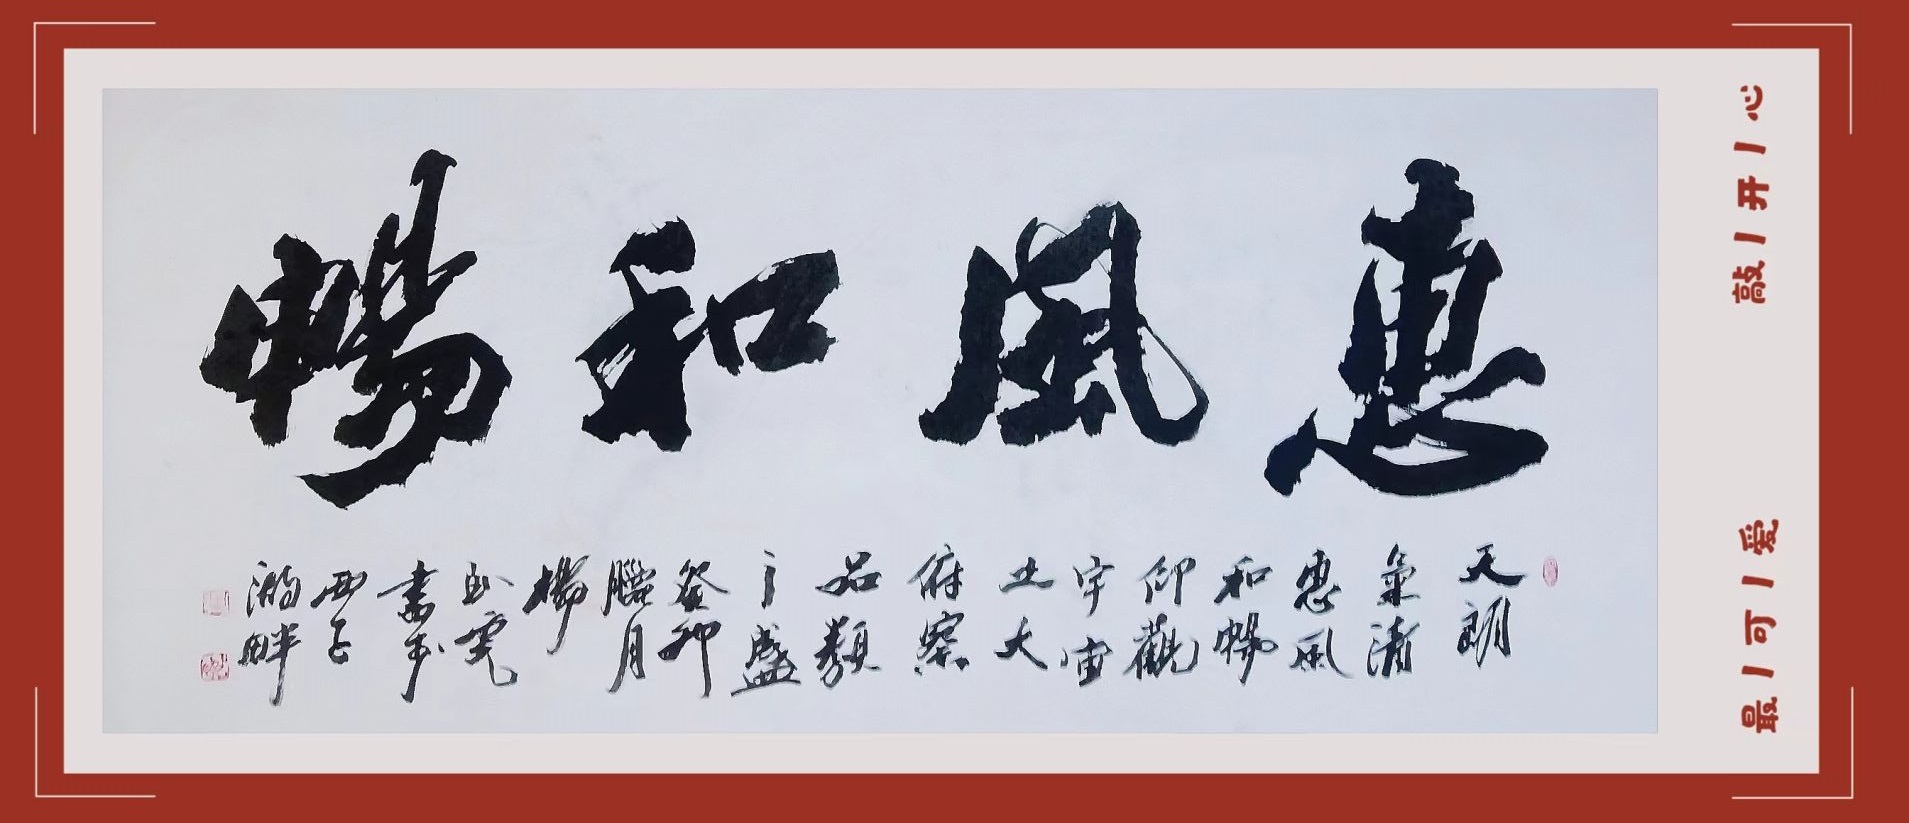 惠風和暢
天朗
氣清
惠風
和暢
仰觀
宇宙
之大
俯察
品類
之盛
癸卯
臘月
楊
玉
書于
西子
湖畔
最|可|爱
敲|开|心